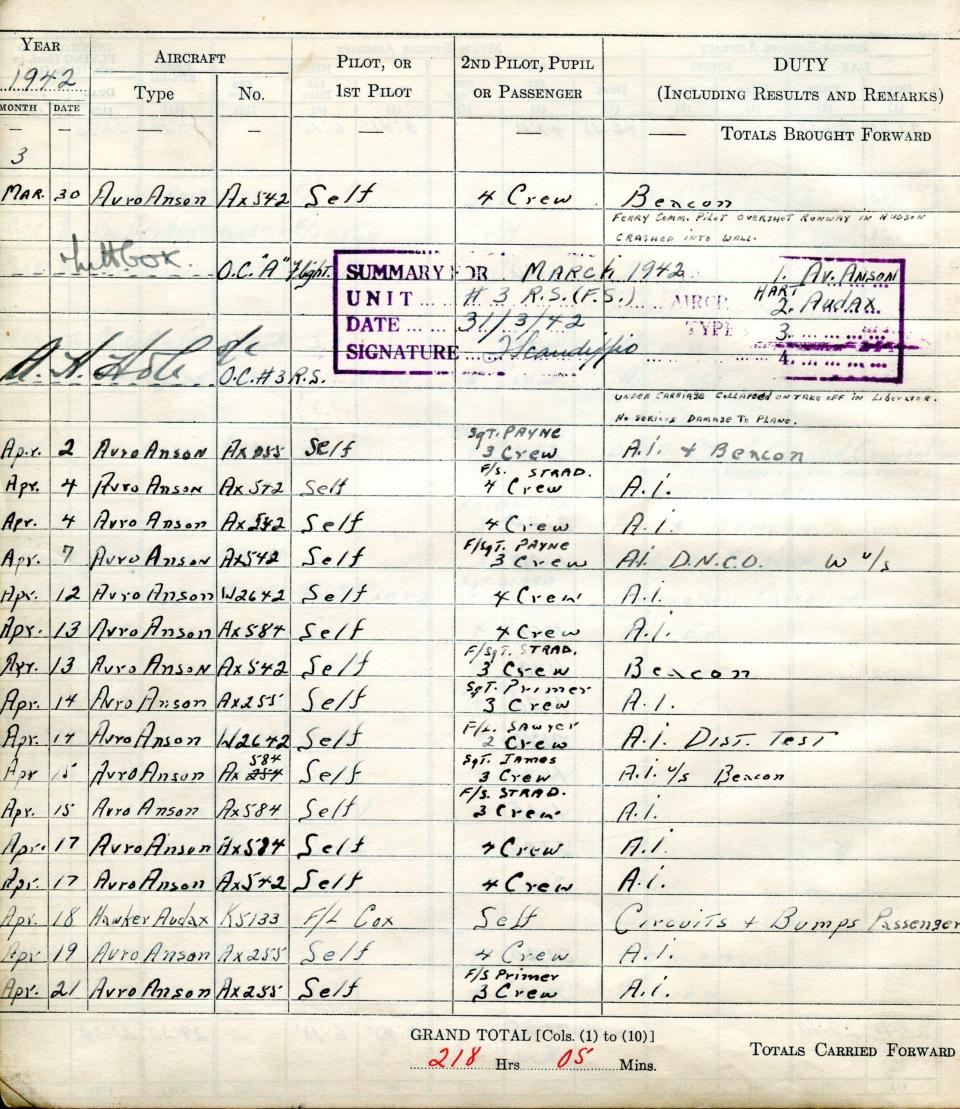 YEAR AIRCRAFT PILOT, OR 2ND PILOT, PUPIL DUTY
1942 Type No. 1ST PILOT OR PASSENGER (INCLUDING RESULTS AND REMARKS)
MONTH DATE
— — — — — — TOTALS BROUGHT FORWARD
3
MAR. 30 Avro Anson Ax542 Self 4 Crew Beacon
FERRY COMM. PILOT OVERSHOT RUNWAY IN HUDSON
CRASHED INTO WALL.
O.C. "A" Flight.
SUMMARY FOR MARCH 1942 1. AV. ANSON
UNIT # 3 R.S.(F.S.) AIRCR HART 2. Audax
DATE 31/3/42 TYPE 3.
SIGNATURE 4.
O.C. #3 R.S.
UNDER CARRIAGE COLLAPSED ON TAKE OFF IN LIBERATOR.
NO SERIOUS DAMAGE TO PLANE.
SGT. PAYNE
Apr. 2 Avro Anson Ax255 Self 3 Crew A.I. + Beacon
F/S. STRAD.
Apr. 4 Avro Anson Ax542 Self 4 Crew A.I.
Apr. 4 Avro Anson Ax542 Self 4 Crew A.I.
F/SGT. PAYNE
Apr. 7 Avro Anson Ax542 Self 3 Crew A.I. D.N.C.O. W u/s
Apr. 12 Avro Anson W2642 Self 4 Crew A.I.
Apr. 13 Avro Anson Ax584 Self 4 Crew A.I.
F/SGT. STRAD.
Apr. 13 Avro Anson Ax542 Self 3 Crew Beacon
SGT. Primer
Apr. 14 Avro Anson Ax255 Self 3 Crew A.I.
F/L. SAWYER
Apr. 14 Avro Anson W2642 Self 2 Crew A.I. DIST. TEST
584 SGT. JAMES
Apr 15 Avro Anson Ax 254 Self 3 Crew A.I. u/s Beacon
F/S. STRAD.
Apr. 15 Avro Anson Ax584 Self 3 Crew A.I.
Apr. 17 Avro Anson Ax584 Self 4 Crew A.I.
Apr. 17 Avro Anson Ax542 Self 4 Crew A.I.
Apr. 18 Hawker Audax K5133 F/L Cox Self Circuits + Bumps Passenger
Apr 19 Avro Anson Ax255 Self 4 Crew A.I.
F/S Primer
Apr. 21 Avro Anson Ax255 Self 3 Crew A.I.
GRAND TOTAL [Cols. (1) to (10)]
218 Hrs 05 Mins. TOTALS CARRIED FORWARD